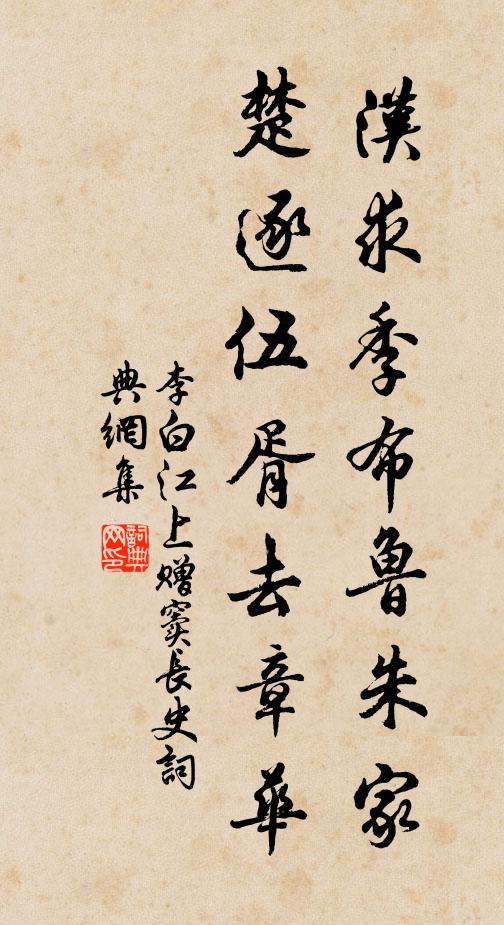 漢求季布魯朱家
楚逐伍胥去章華
李白江上贈竇長史詞
典網集
詞典
网印